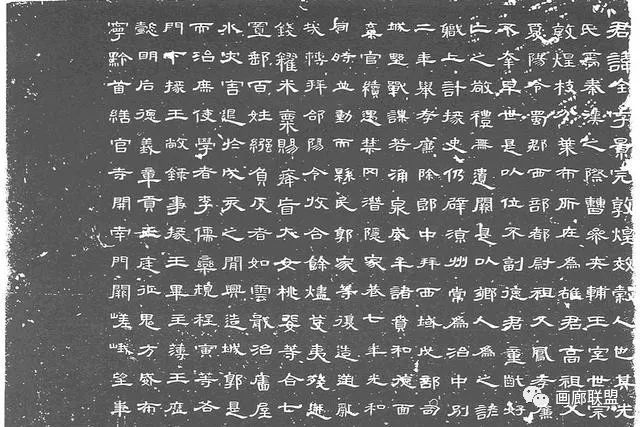 君諱全字景完敦煌效穀人也其先
氏焉秦漢之際曹參夾輔王室世宗
敦煌枝分葉布所在為雄君高祖父
夏陽令蜀郡西部都尉祖父鳳孝廉
不幸早世是以位不副德君童齔好
亡之敬禮無遺闕是以鄉人為之諺
職上計掾史仍辟涼州常為治中別
二年舉孝廉除郎中拜西域戊部司
城野戰謀若涌泉威牟諸賁和德面
棄官續遇禁冈潛隱家巷七年光和
同時並動而縣民郭家等復造逆亂
哉轉拜郃陽令收合餘燼芟夷殘迸
錢糴米粟賜癃盲大女桃婓等合七
置郵百姓繦負反者如雲戢治廧屋
水灾害退於戌亥之間興造城郭是
而治庶使學者李儒欒規程寅等各
門下掾王敞錄事掾王畢主薄王歷
懿明后德義章貢王庭征鬼方威布
寧黔首繕官寺開南門闕嵯峨望華
画廊联盟